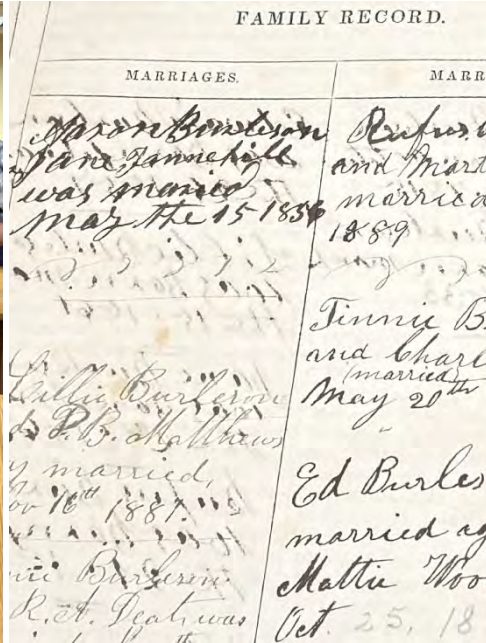 FAMILY RECORD.
MARRIAGES.
Aaron Burleson
Jane Tannehill
was maried
may the 15 1856
Lillie Burleson
P. B. Matthews
married,
Nov 16th 1881.
Burleson
R. A. Deats was
MARR
Rufus
and Mart
married
1889
Tinnie B
and Charl
(married)
May 20th
Ed Burles
married ag
Mattie Woo
Oct. 25, 18